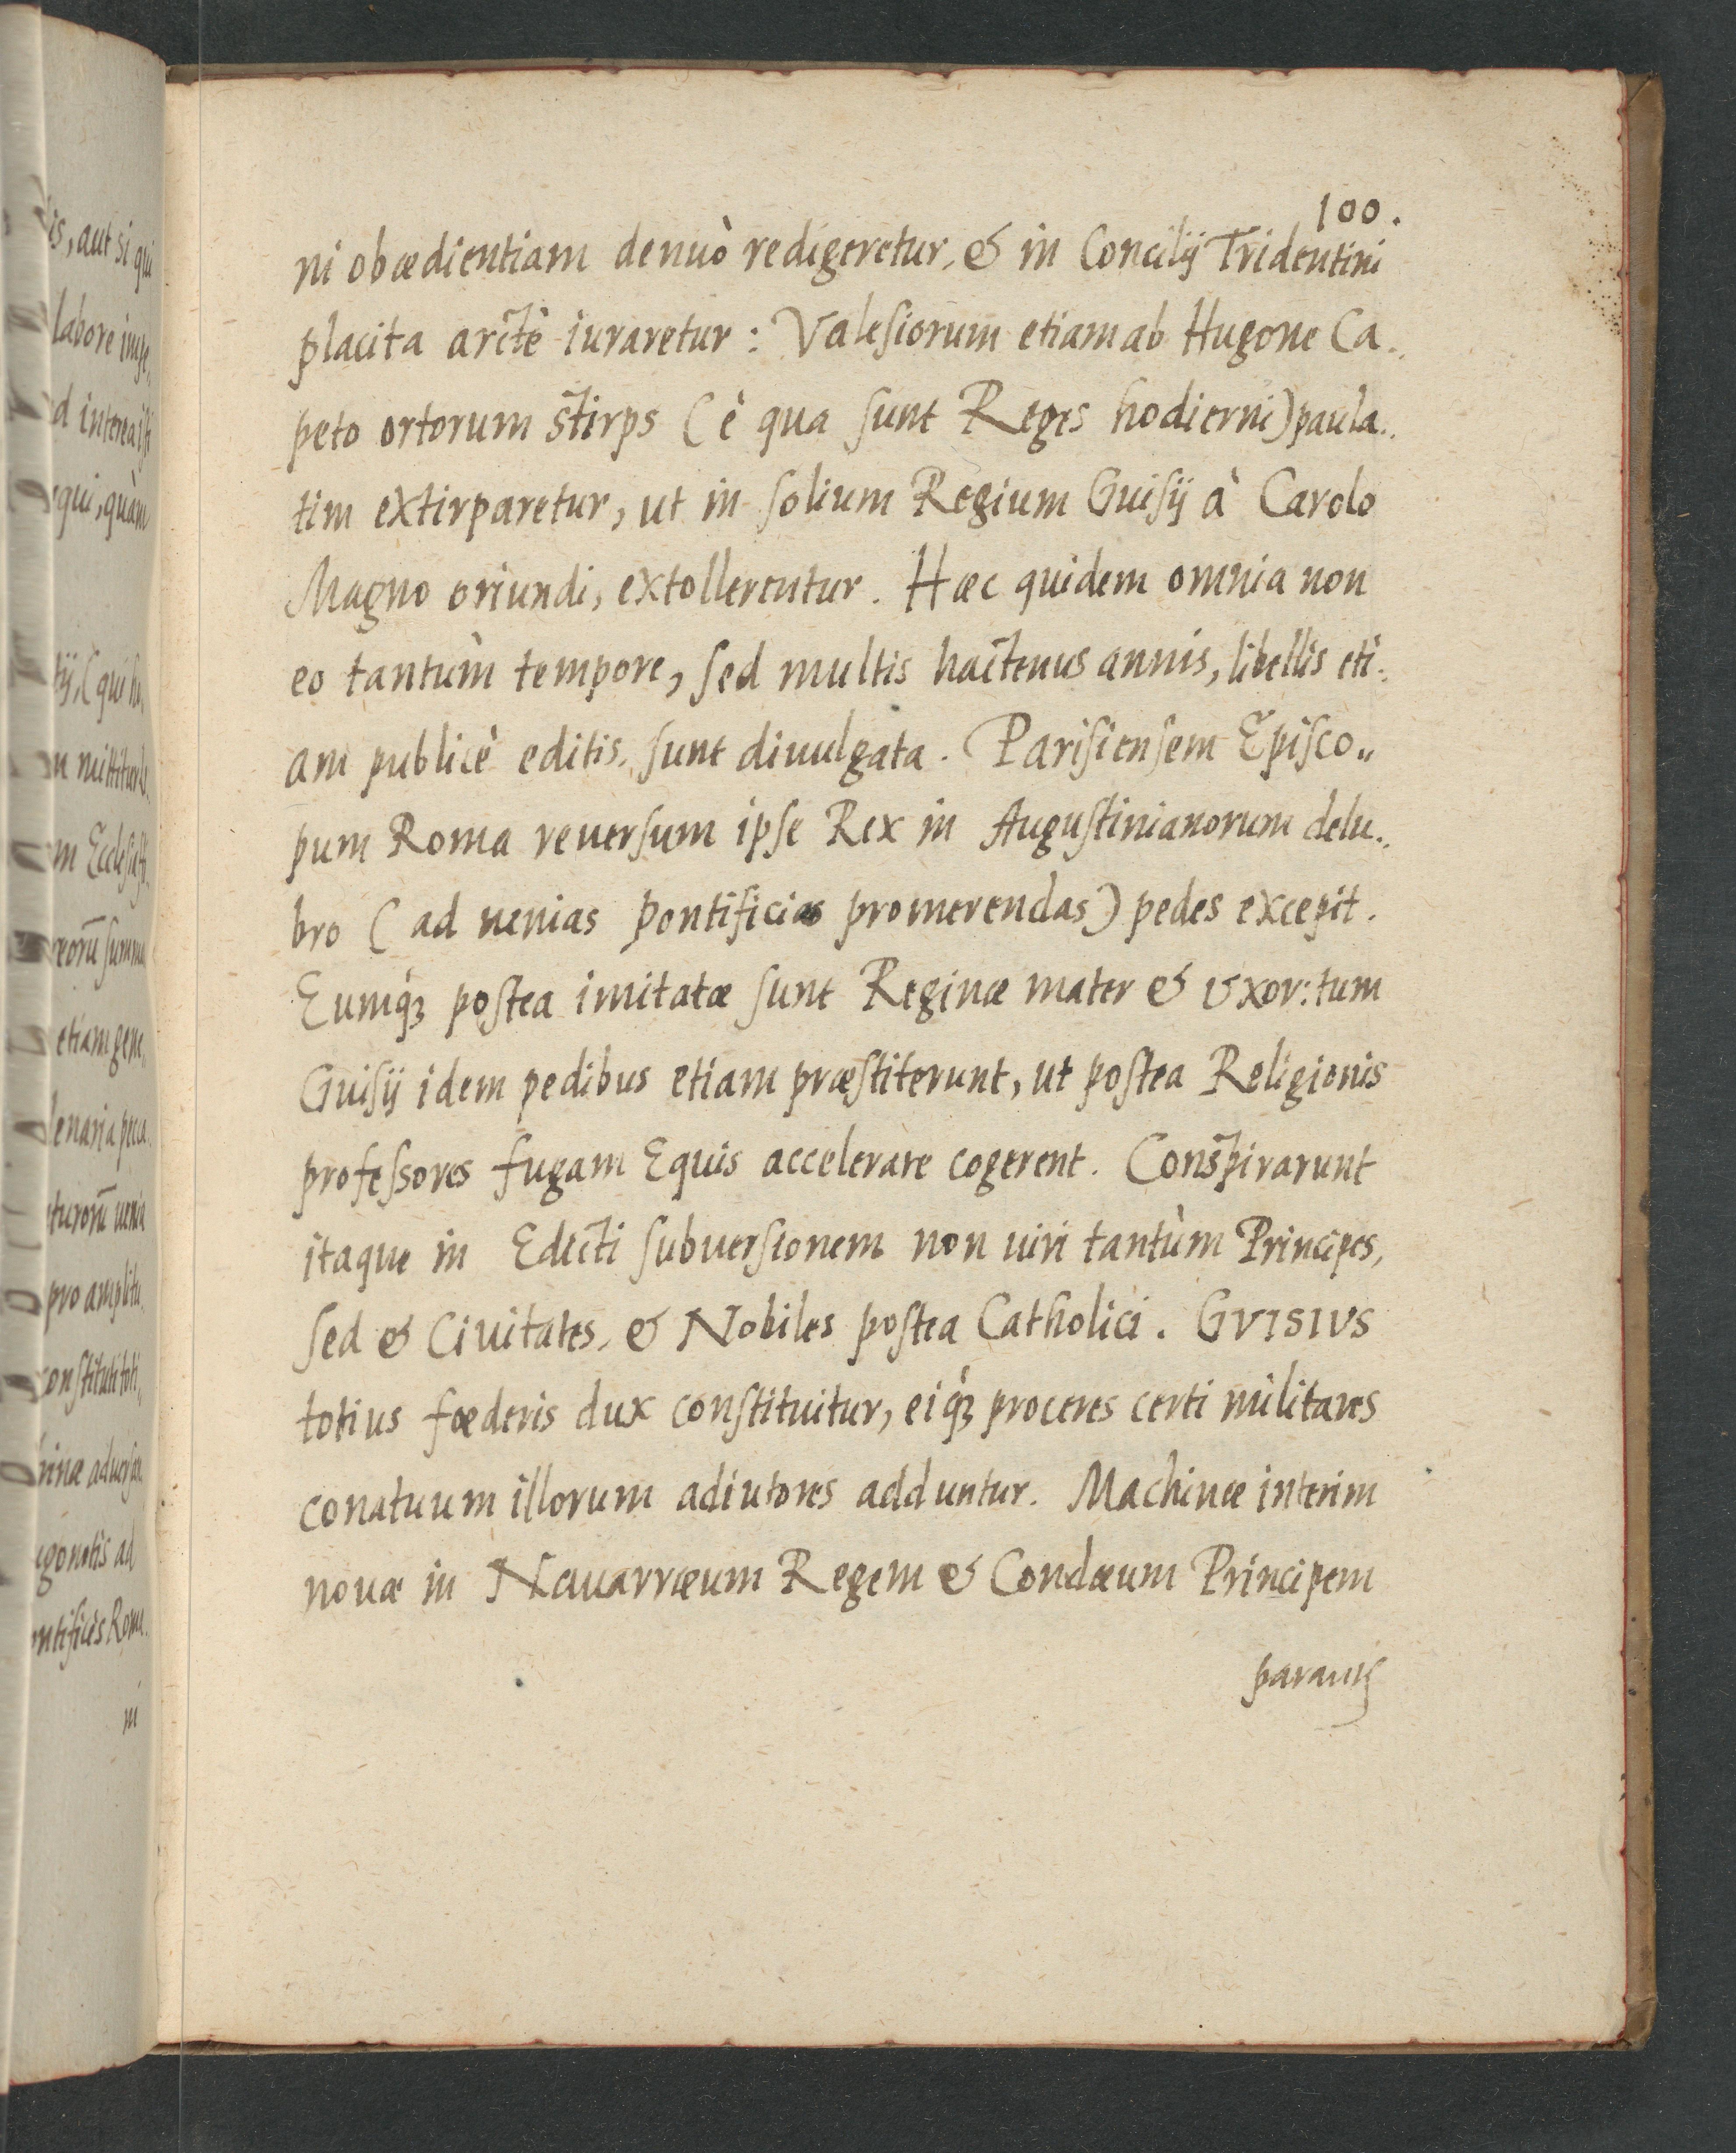 is, aut si qui
labore impe„
d interea isti
equi, quàm
tij, (qui hu„
m Ecclesiasti„
etiam gene„
lenaria pecca„
pro amplitu„
constituti toti„
rinæ aduersæ
ugonotis ad
ontifices Roma„
ni
100.
ni obædientiam denuò redigeretur, & in Concilij Tridentini
placita arctè iuraretur : Valesiorum etiam ab Hugone Ca„
peto ortorum stirps ( è qua sunt Reges hodierni) paula„
tim extirparetur, ut in solium Regium Guisij à Carolo
Magno oriundi, extollerentur. Hæc quidem omnia non
eo tantùm tempore, sed multis hactenus annis, libellis eti„
am publicè editis, sunt diuulgata. Parisiensem Episco„
pum Roma reuersum ipse Rex in Augustinianorum delu„
bro ( ad uenias pontificias promerendas) pedes excepit.
Eumq́ꝫ postea imitatæ sunt Reginæ mater & vxor: tum
Guisij idem pedibus etiam præstiterunt, ut postea Religionis
professores fugam Equis accelerare cogerent. Conspirarunt
itaque in Edicti subuersionem non uiri tantùm Principes,
sed & Ciuitates, & Nobiles postea Catholici. GVISIVS
totius fœderis dux constituitur, eiq́ꝫ proceres certi militares
conatuum illorum adiutores adduntur. Machinæ interim
nouæ in Nauarræum Regem & Condæum Principem